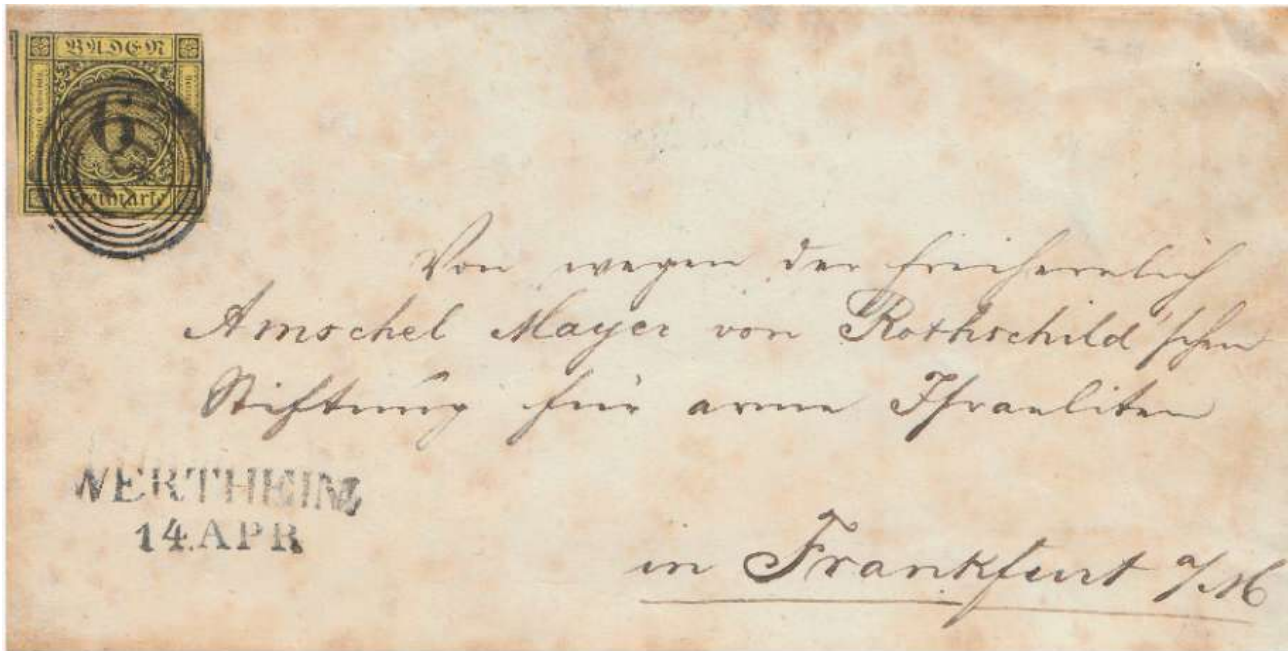 BADEN
6
Freimarke
Von wegen der freiherrlich
Amschel Mayer von Rothschild'schen
Stiftung für arme Israeliten
WERTHEIM
14.APR
in Frankfurt a/M